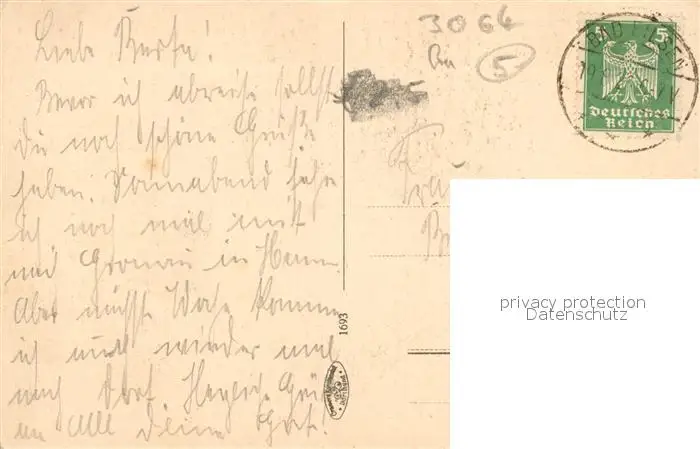 Liebe Berta!
Bevor ich abreise sollst
du noch schöne Grüße
haben. Sonnabend fahre
ich noch mal mit
nach Gronau in Hann.
Aber nächste Woche komme
ich auch wieder mal
nach dort. Herzlich. Grüße
an Alle Deine
3066
5
5 5
Deutsches
Reich
Frau
1693
privacy protection
Datenschutz